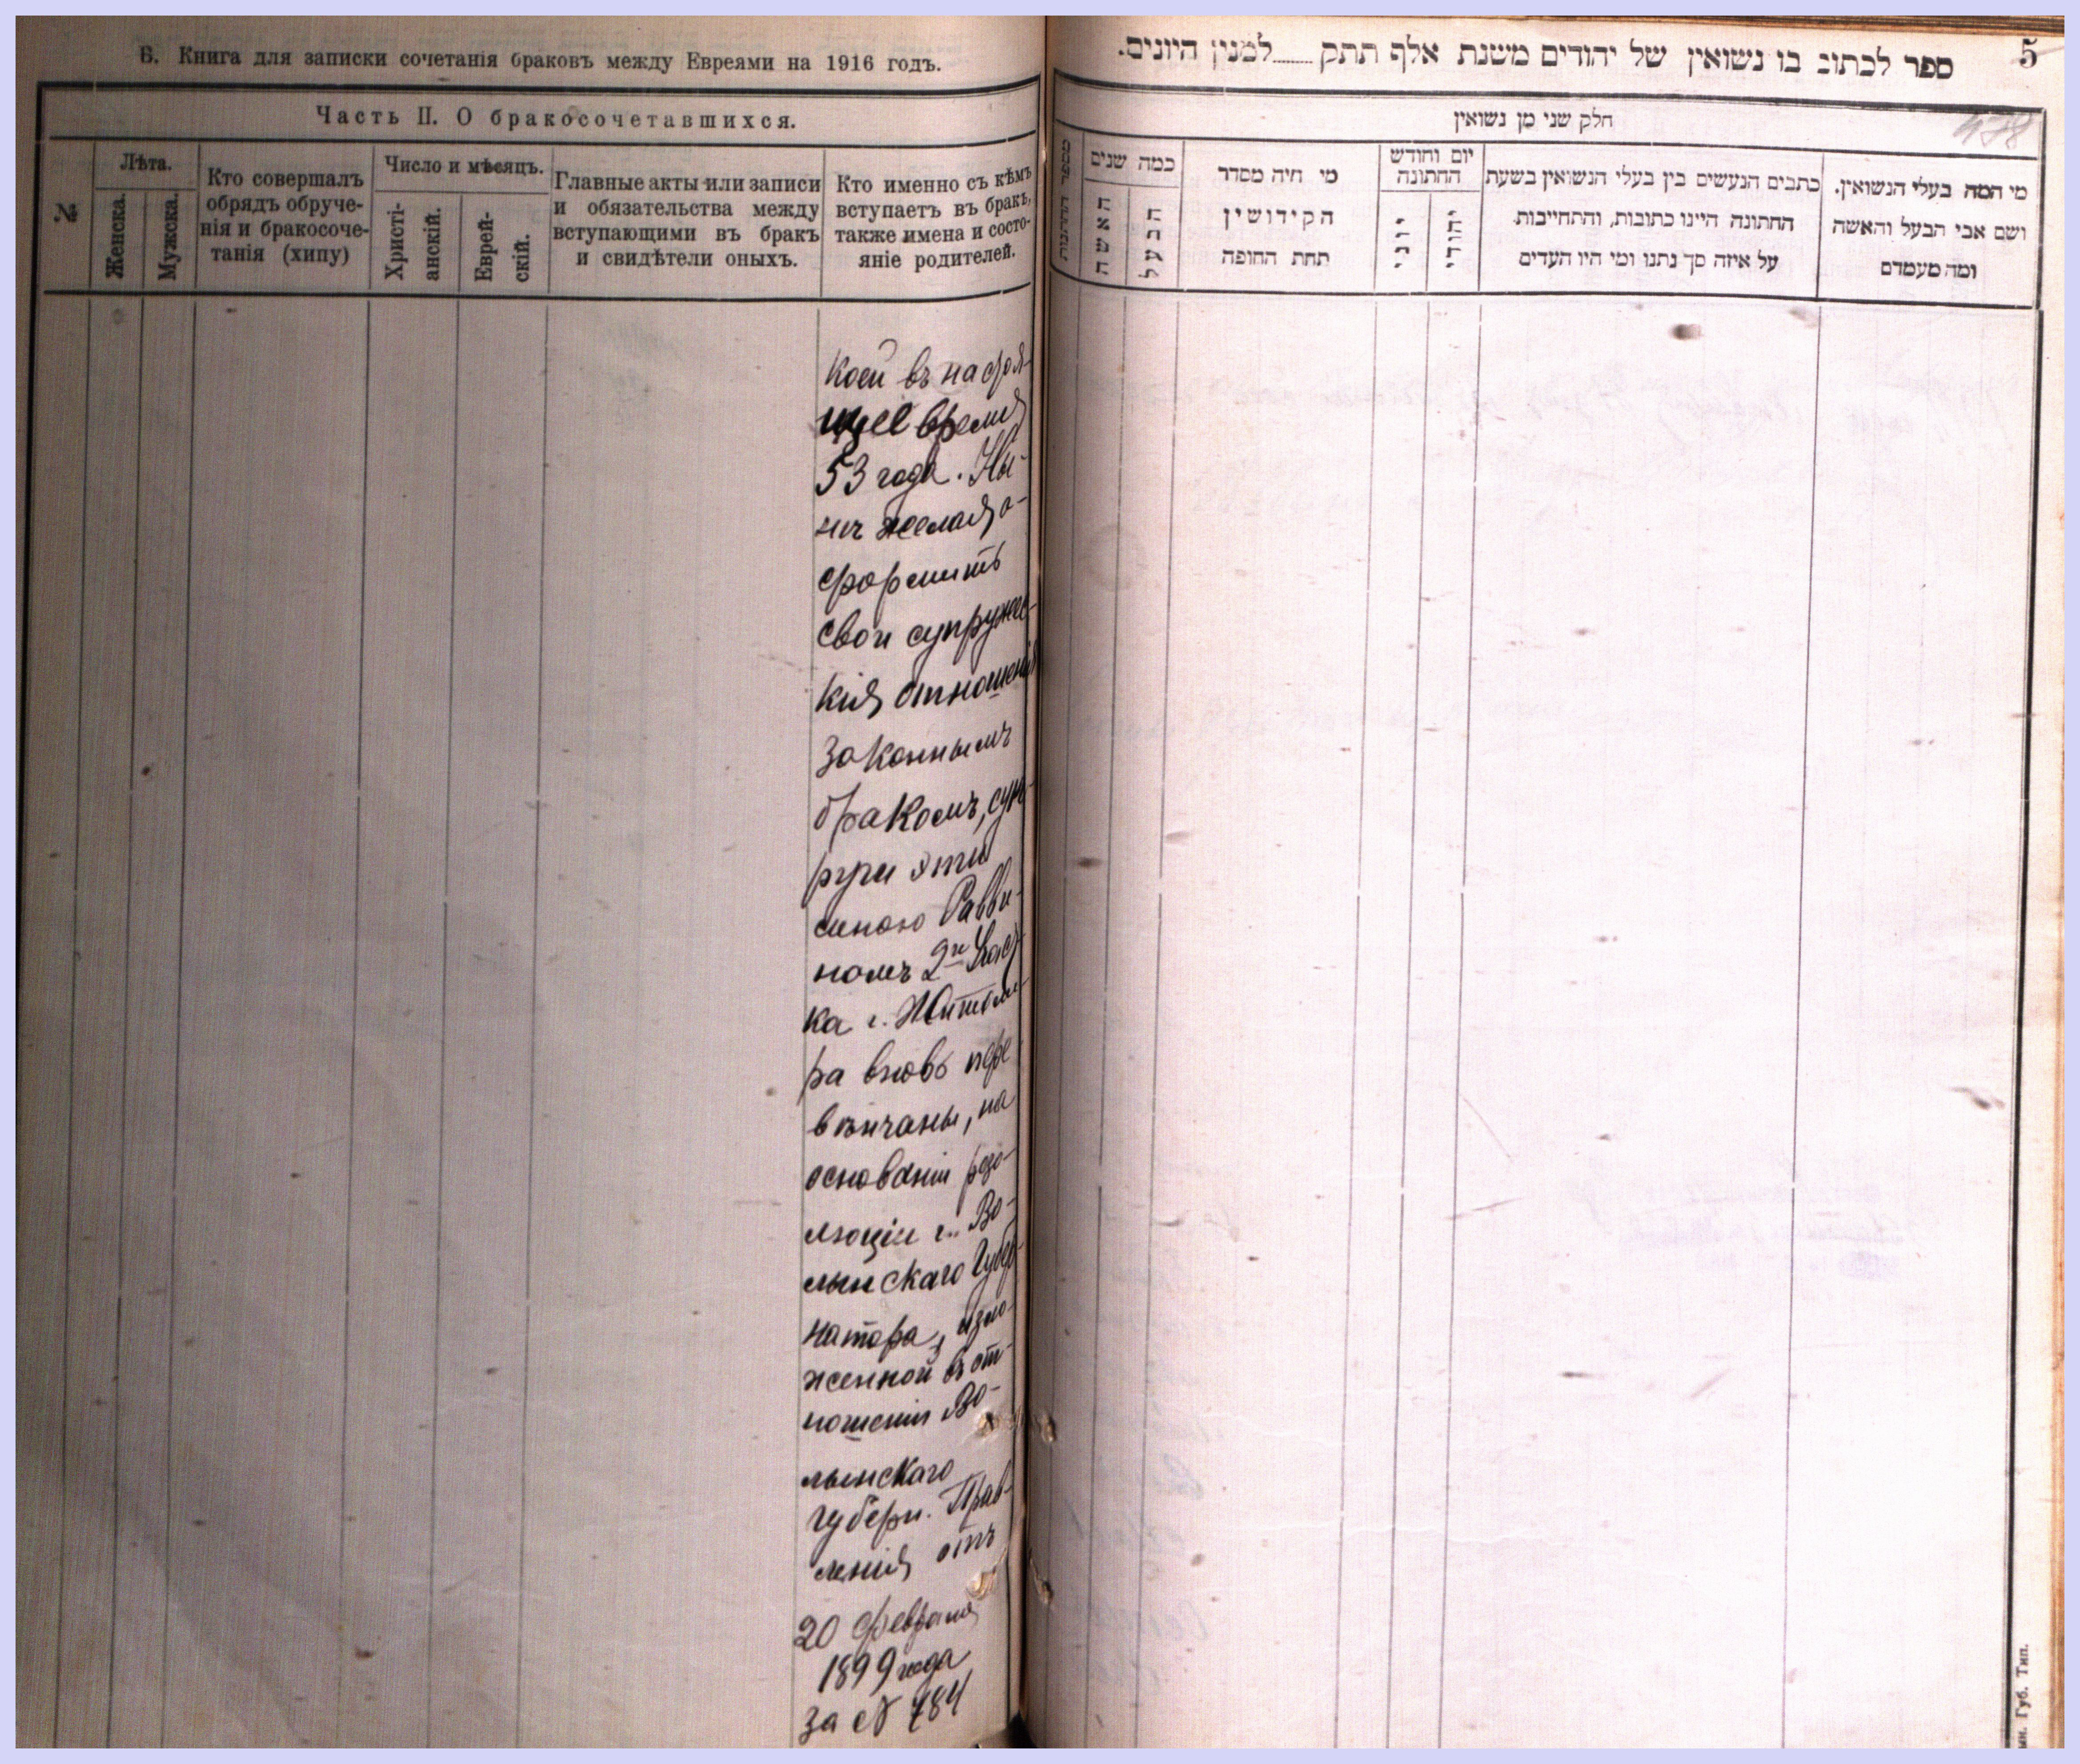 Б. Книга для записки сочетанія браковъ между Евреями на 1916 годъ.
Часть II. О бракосочетавшихся.
№
Лѣта.
Женска.
Мужска.
Кто совершалъ
обрядъ обруче-
нія и бракосоче-
танія (хипу)
Число и мѣсяцъ.
Христі-
анскій.
Еврей-
скій.
Главные акты или записи
и обязательства между
вступающими въ бракъ
и свидѣтели оныхъ.
Кто именно съ кѣмъ
вступаетъ въ бракъ,
также имена и состо-
яніе родителей.
коей въ настоя-
щее время
53 года. Ны-
нѣ желая о-
формить
свои супружес-
кія отношенія
законнымъ
бракомъ, суп-
руги эти
мною Равви-
номъ 2го Участ
ка г. Житоми-
ра вновь пере
вѣнчаны, на
основаніи резо-
люціи г. Во-
лынскаго Губер-
натора, изло-
женной въ от-
ношеніи Во-
лынскаго
Губерн. Прав-
ленія отъ
20 февраля
1899 года
за №
5
ספר לכתוב בו נשואין של יהודים משנת אלף תתק למנין היונים.
478
חלק שני מן נשואין
מי המה בעלי הנשואין.
ושם אבי הבעל והאשה
ומה מעמדם
כתבים הנעשים בין בעלי הנשואין בשעת
החתונה היינו כתובות, והתחייבות
על איזה סך נתנו ומי היו העדים
יום וחודש
החתונה
יהודי
יוני
מי היה מסדר
הקידושין
תחת החופה
כמה שנים
הבעל
האשה
מספר החתונות
Губ. Тип.